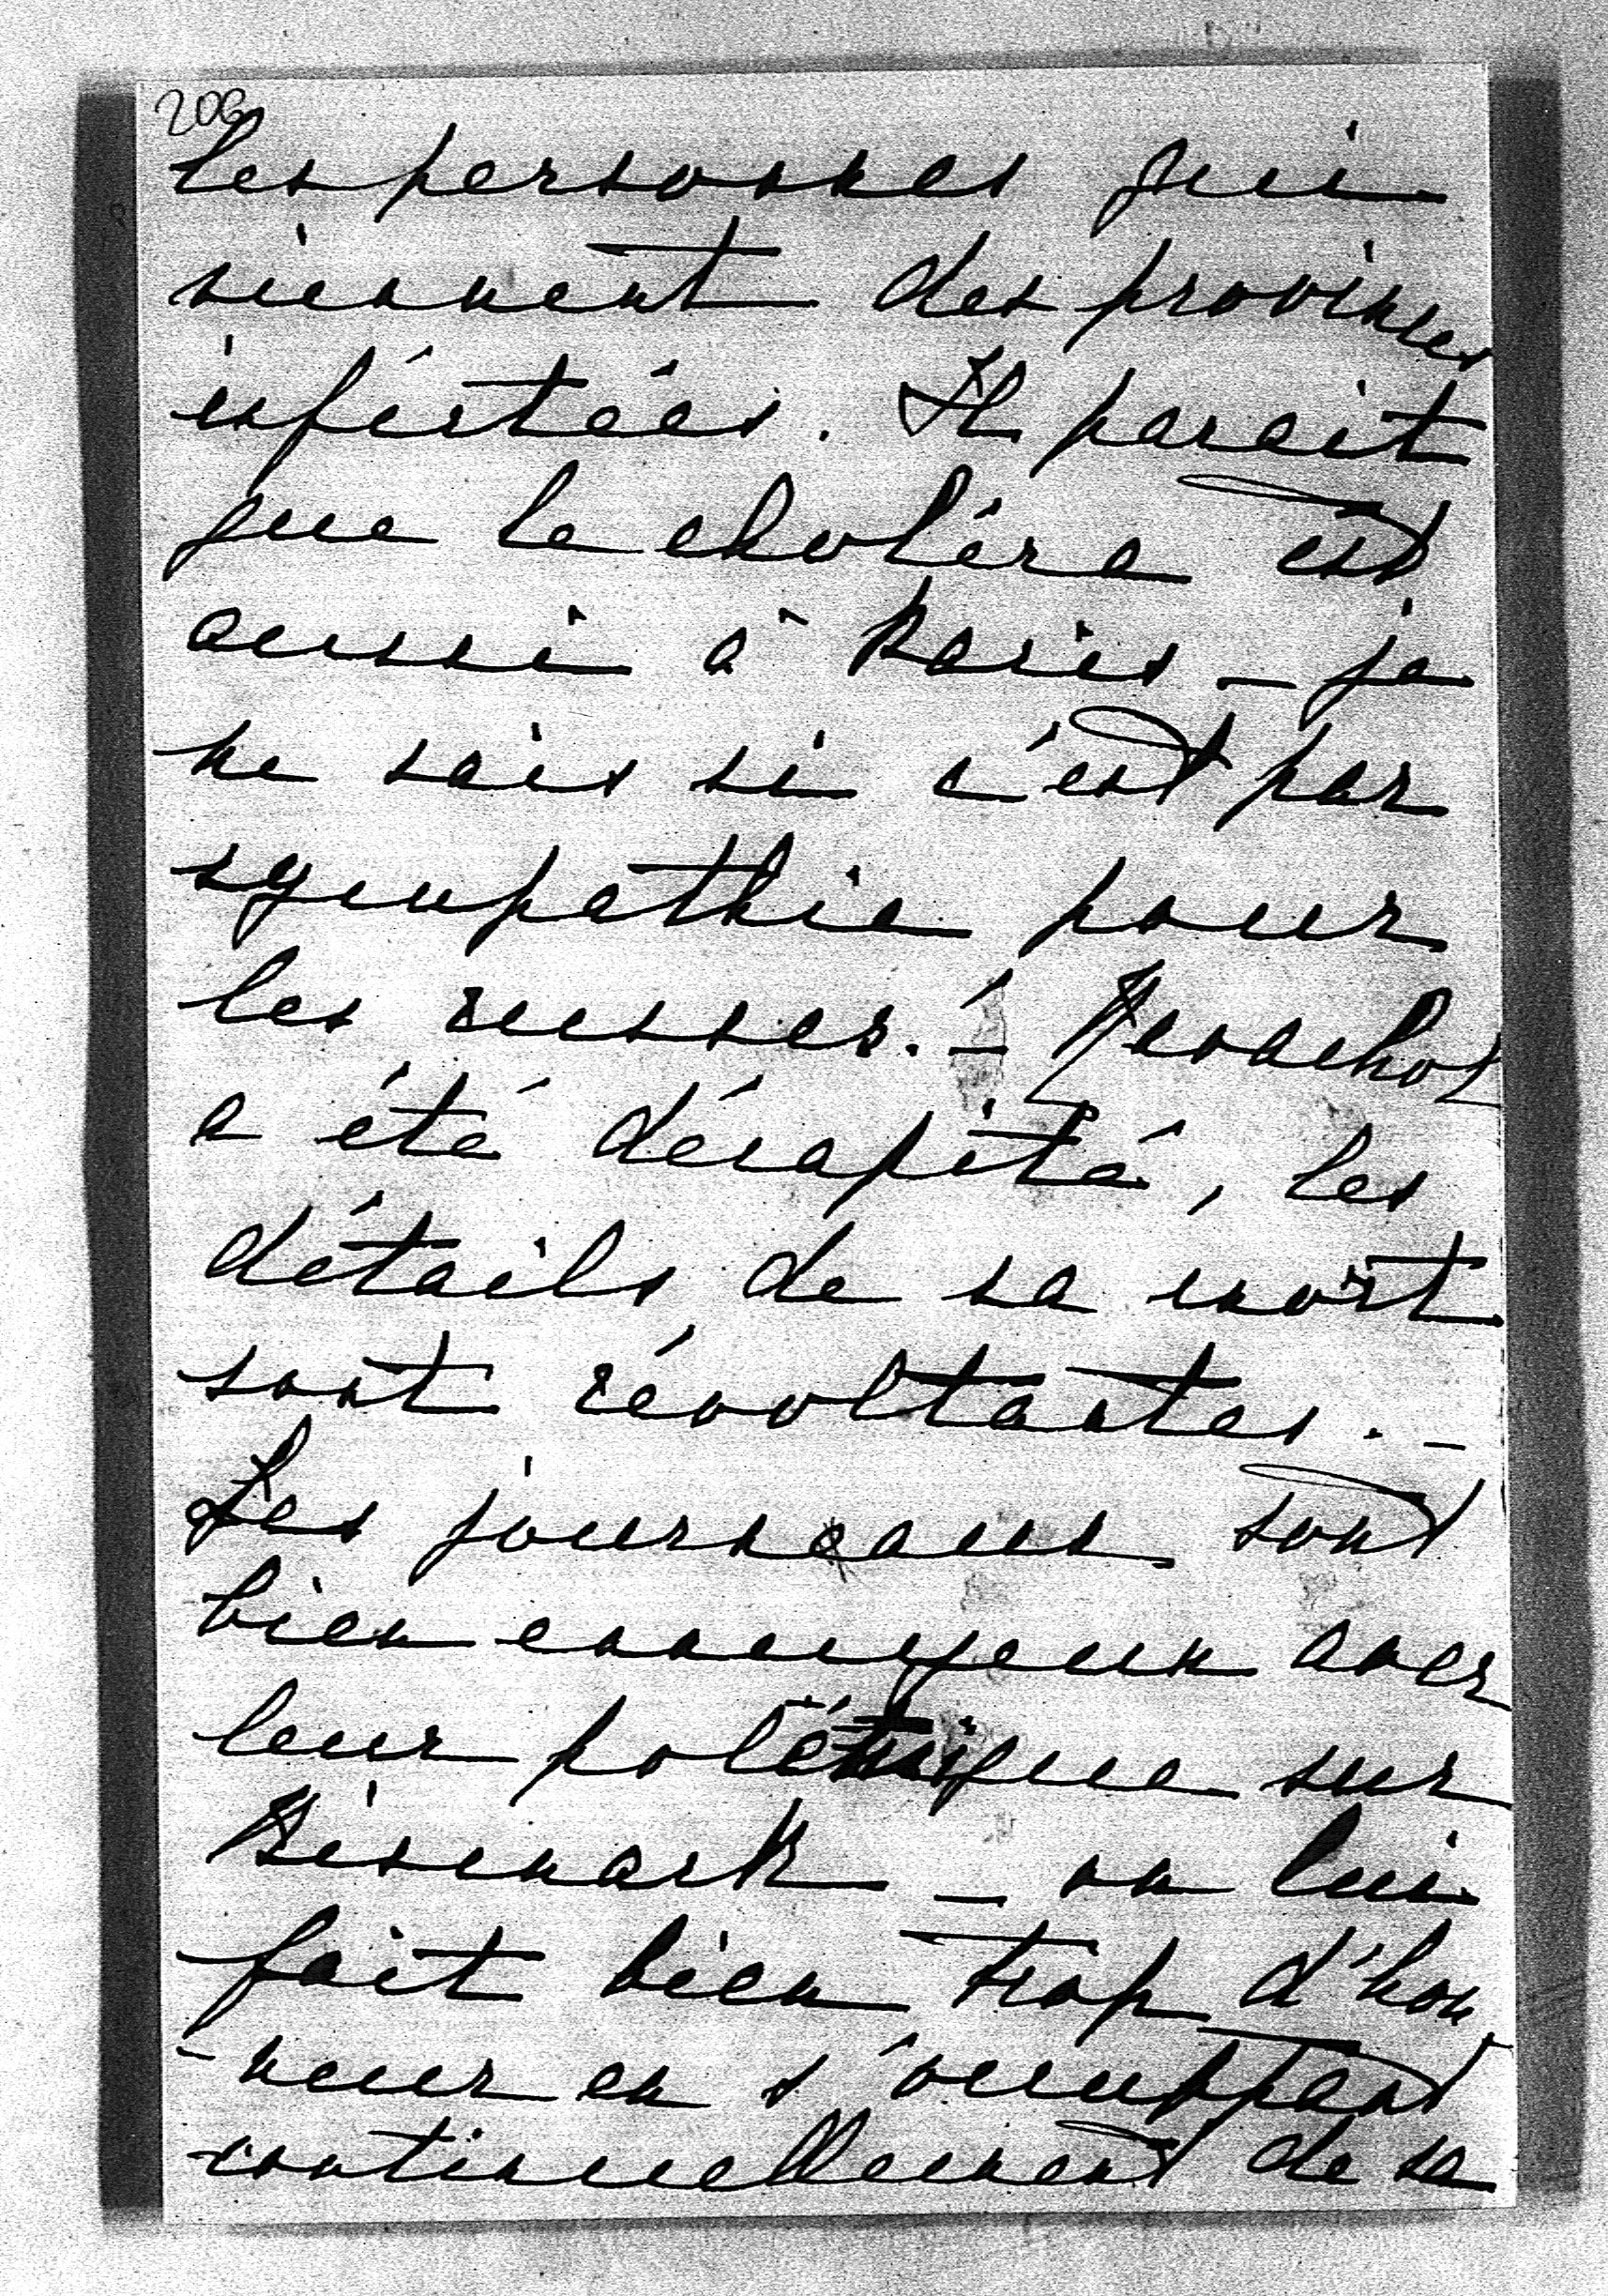 206
les personnes qui
viennent des provinces
infectées. Il parait
que le choléra est
aussi à Paris – je
ne sais si c'est par
sympathie pour
les russes. – Ravachol
a été décapité, les
détails de sa mort
sont révoltantes. –
Les journeaux sont
bien ennuyeux avec
leur polémique sur
Bismark – on lui
fait bien trop d'hon
-neur en s'occuppant
continuellement de sa